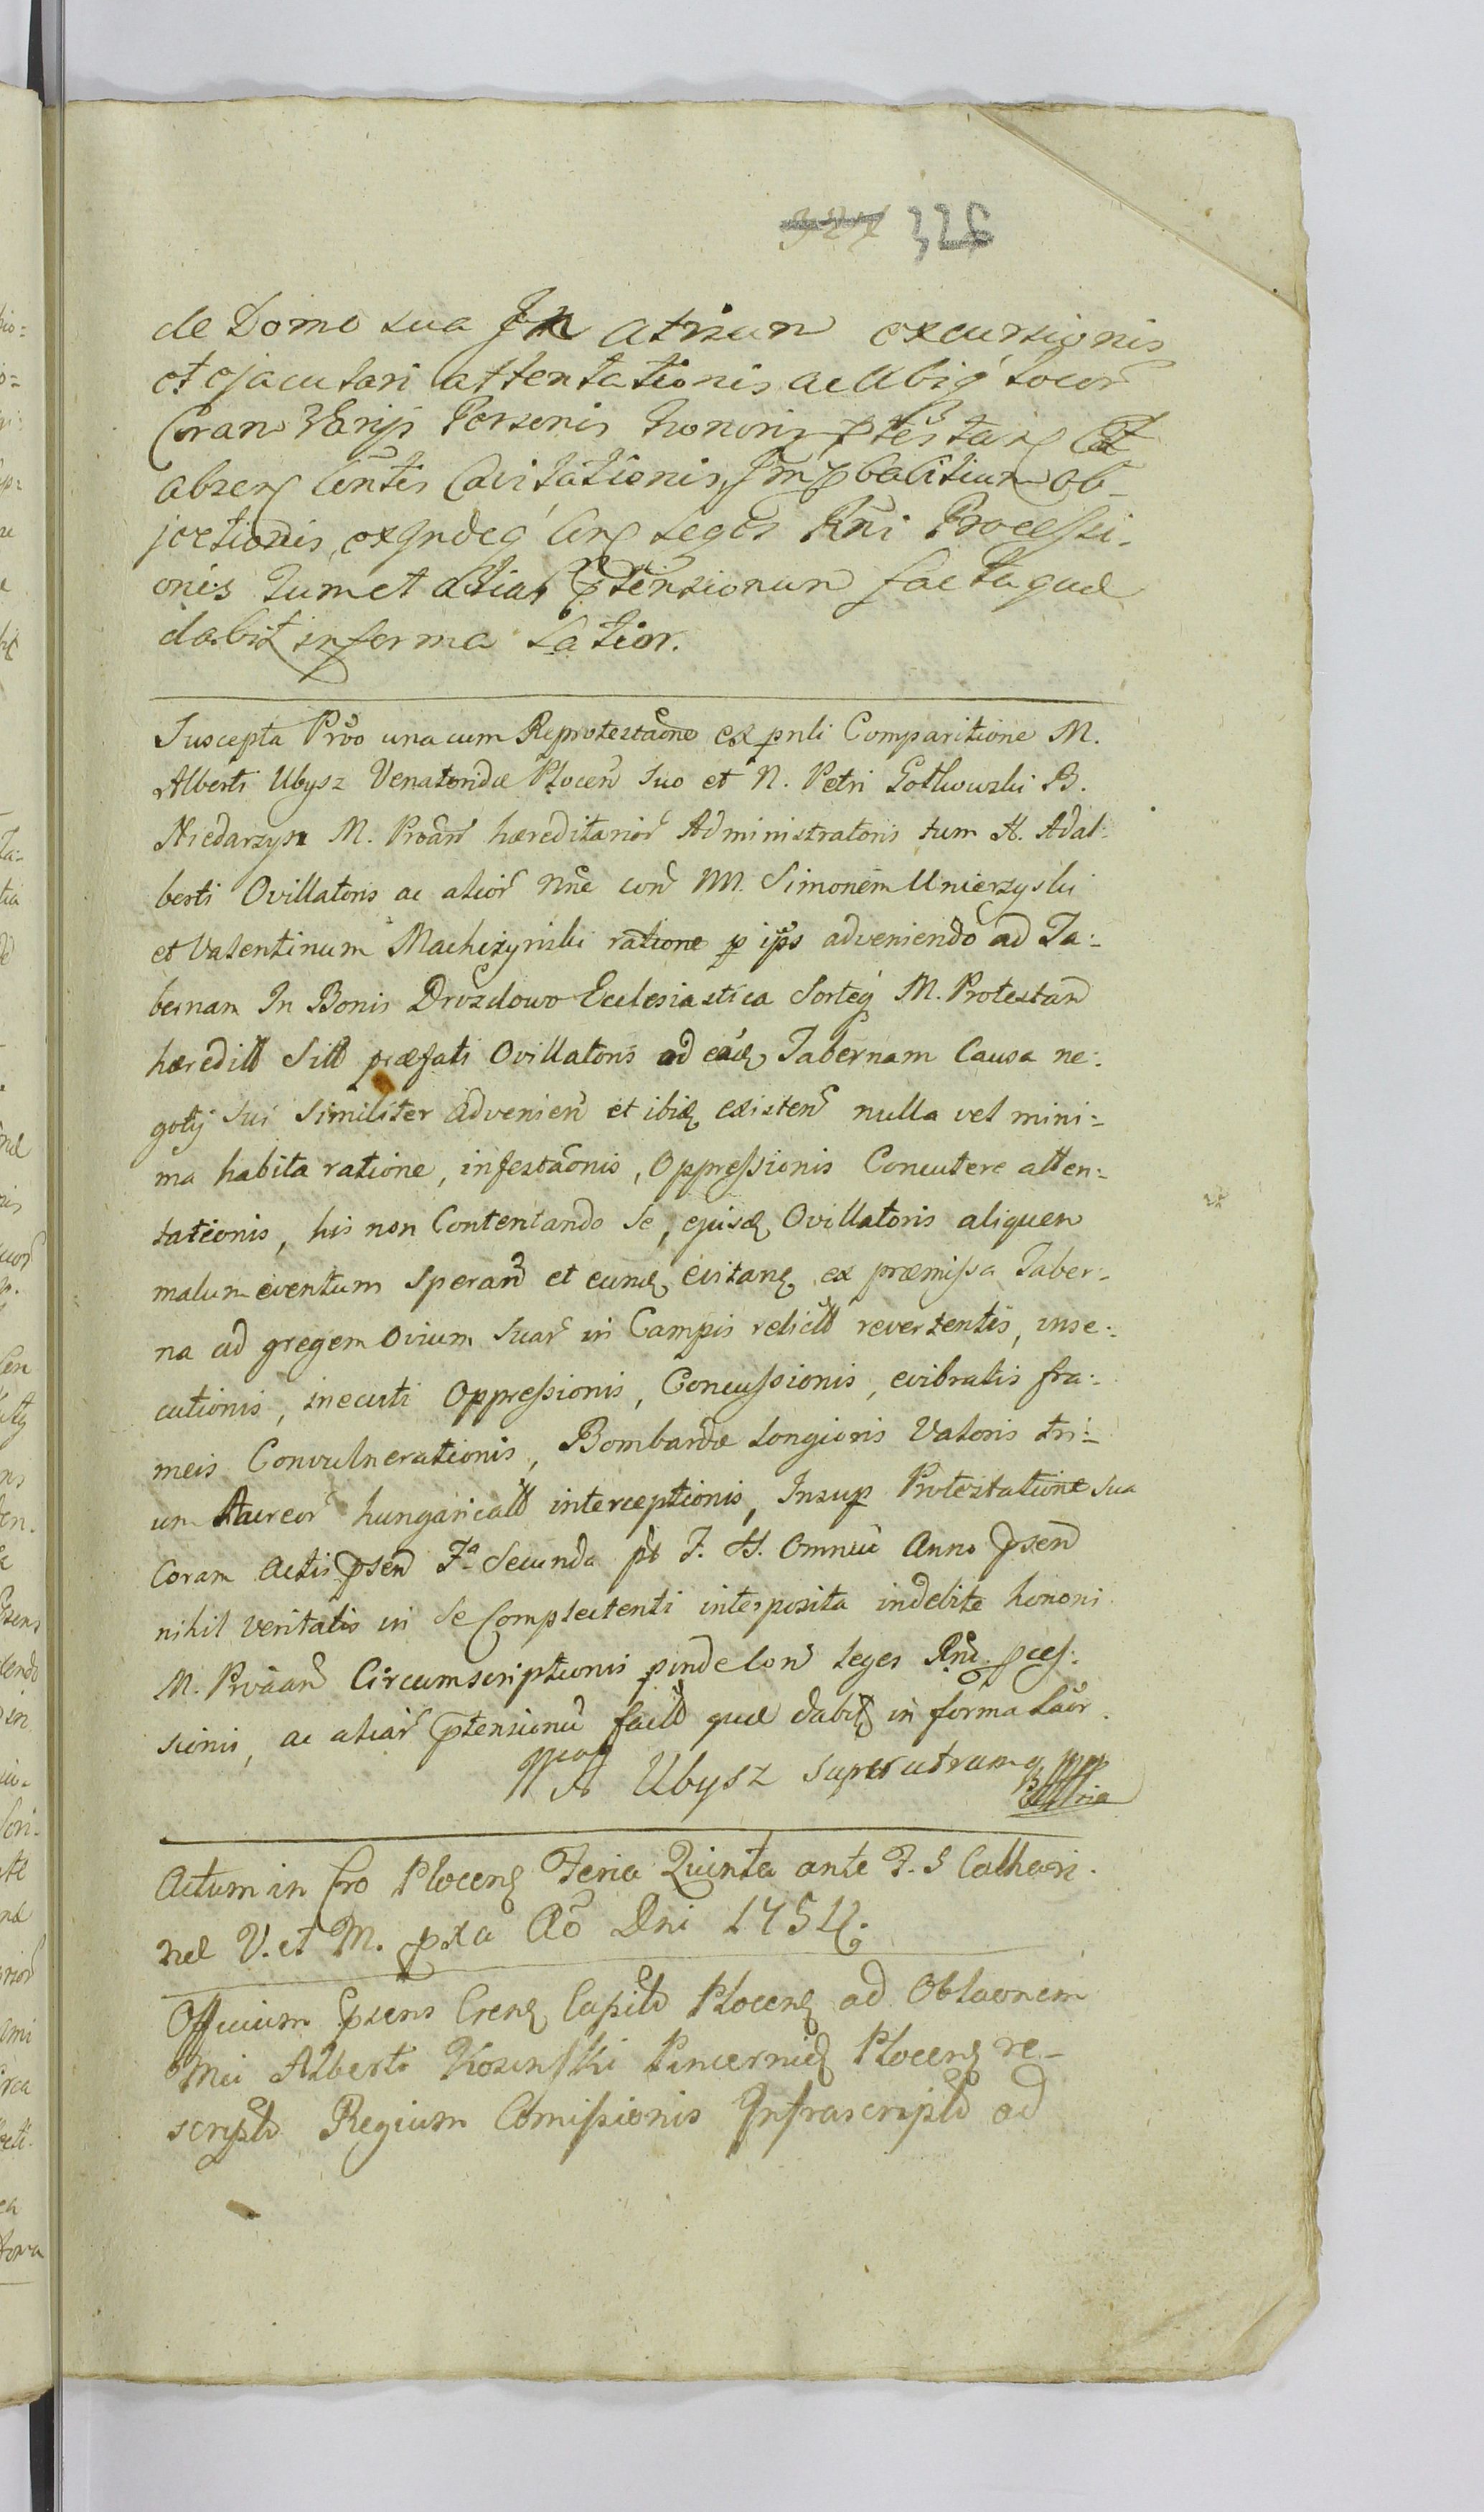 325
de Domo sua In atrium excursionis
et ejaculari attentationis ac Ubiq locor
Coram Varijs Personis honoris ptestan Et
absen Centis Cavitationis, Improbalitium ob-
jectionis, exindeq Con leges Rni Processi-
onis tum et aliar ptensionum facta quae
dabit in forma Latior.
Suscepta Prõo unacum Reprotestaõne ex pnli Comparitione M.
Alberti Ubysz Venatoridae Plocen suo et N. Petri Gotkowski B.
Niedarzyn M. Proãn haereditarior Administratoris tum H. Adal:
berti Ovillatoris ac alior nñe con MM. Simonem Unierzyski
et Valentinum Machczynski ratione p ipõs adveniendo ad Ta:
bernam In Bonis Drozdowo Ecclesiastica Sorteq M. Protestan
haeredit Sitt praefati Ovillatoris ad eãd Tabernam Causa ne:
gotij sui similiter advenien et ibid existen nulla vel mini=
ma habita ratione, infestaõnis, Oppressionis Concutere atten:
tationis, his non Contentando se, ejusd Ovillatoris aliquem
malum eventum speran et eund evitan ex praemissa Taber:
na ad gregem Ovium suar in Campis relict revertentis, inse:
cutionis, inecuti Oppressionis, Concussionis, evibratis fra:
meis Convulnerationis, Bombardae longioris Valoris tri:
um Aureor hungaricalt interceptionis, Insup Protestatione sua
Coram Actis psen Fa Secunda pt F. SS. Omniũ Anno psen
nihil veritatis in se Complectenti interposita indebite honori
M. Proãan Circumscriptionis pinde Con leges Rni pces:
sionis, ac aliar ptensionũ fact quae dabit in forma Laõr.
A Ubysz super utramq mpp
Actum in Cro Plocen Feria Quinta ante F. S Cathari:
nae V. et M. pxa Ao Dni 1754.
Officium psens Cren Capit Plocen ad Oblaõnem
Mci Alberti Kosinski Pincernid Plocen re-
script Regium Comissionis Infrascript ad